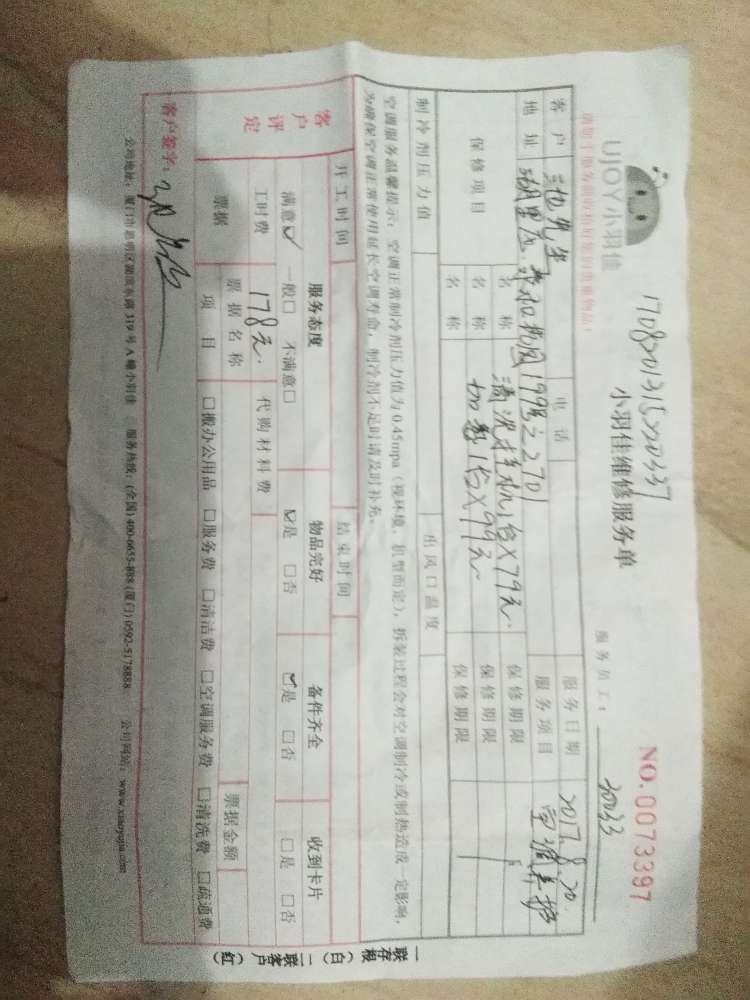 UJOY小羽佳
170820131520337
小羽佳维修服务单
NO.0073397
请给予服务前请收好您的贵重物品!
服务员工: 30033
客户 先生 电话 服务日期 2017.8.20
地址 湖里区 199号之2701 服务项目 空调养护
保修项目 名称 清洗挂机1台X79元. 保修期限
名称 加氨1台X99元 保修期限
名称 保修期限
制冷剂压力值 出风口温度
空调服务温馨提示:空调正常制冷剂压力值为0.45mpa(视环境、机型而定),拆装过程会对空调制冷或制热造成一定影响,
为确保空调正常使用延长空调寿命,制冷剂不足时请及时补充。
开工时间 结束时间
客户评定 服务态度 物品完好 备件齐全 收到卡片
满意☑ 一般□ 不满意□ ☑是 □否 ☑是 □否 □是 □否
工时费 178元. 代购材料费
票据 票据名称 票据金额
项目 □搬办公用品 □服务费 □清洁费 □空调服务费 □清洗费 □疏通费
客户签字:
公司地址:厦门市思明区湖滨东路319号A幢小羽佳 服务热线:(全国)400-6655-888 (厦门)0592-5178888 公司网站:www.xiaoyujia.com
一联存根(白) 二联客户(红)